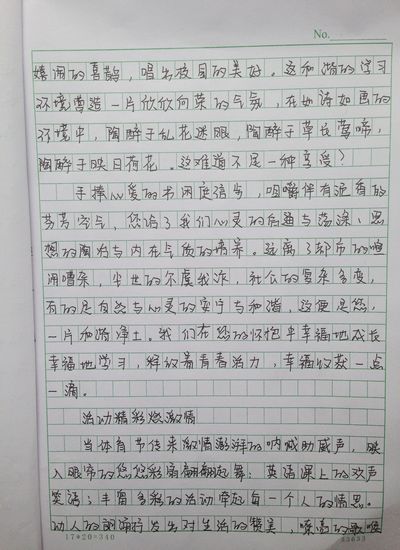 No.
嬉闹的喜鹊，唱出校园的美好。这和谐的学习
环境营造一片欣欣向荣的气氛，在如诗如画的
环境中，陶醉于乱花迷眼，陶醉于草长莺啼，
陶醉于映日荷花。这难道不是一种享受？
手捧心爱的书闲庭信步，咀嚼伴有泥香的
芬芳空气，您给了我们心灵的启迪与荡涤、思
想的陶冶与内在气质的培养。远离了都市的喧
闹嘈杂，尘世的尔虞我诈，社会的复杂多变，
有的是自然与心灵的安宁与和谐，这便是您，
一片和谐净土。我们在您的怀抱中幸福地成长
幸福地学习，释放着青春活力，幸福收获一点
一滴。
活动精彩悠激情
当体育节传来激情澎湃的呐喊助威声，映
入眼帘的您您彩裔翩翩起舞；英语课上的欢声
笑语；丰富多彩的活动牵起每一个人的情思。
动人的朗诵抒发出对生活的赞美，嘹亮的歌喉
17*20=340